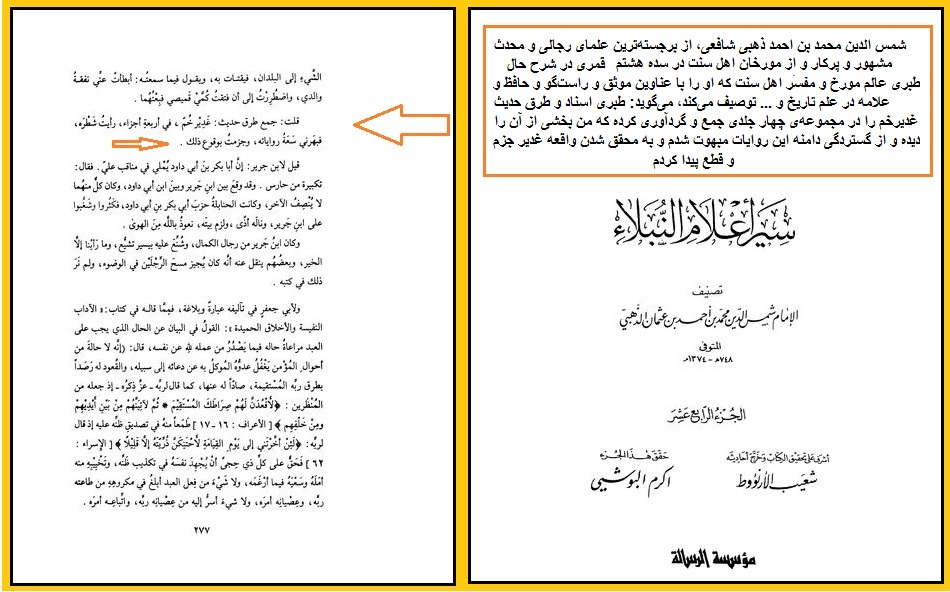 شمس الدین محمد بن احمد ذهبی شافعی، از برجسته‌ترین علمای رجالی و محدث
مشهور و پرکار و از مورخان اهل سنت در سده هشتم قمری در شرح حال
طبری عالم مورخ و مفسر اهل سنت که او را با عناوین موثق و راست‌گو و حافظ و
علامه در علم تاریخ و ... توصیف می‌کند، می‌گوید: طبری اسناد و طرق حدیث
غدیرخم را در مجموعه‌ی چهار جلدی جمع و گردآوری کرده که من بخشی از آن را
دیده و از گستردگی دامنه این روایات مبهوت شدم و به محقق شدن واقعه غدیر جزم
و قطع پیدا کردم
سير أعلام النبلاء
تصنيف
الإمام شمس الدين محمد بن أحمد بن عثمان الذهبي
المتوفى
٧٤٨هـ - ١٣٧٤م
الجزء الرابع عشر
أشرف على تحقيق الكتاب وخرج أحاديثه
شعيب الأرنؤوط
حقق هذا الجزء
أكرم البوشي
مؤسسة الرسالة
الشيءَ إلى البلدان، فيقتات به، ويقول فيما سمعته: أبطأتْ عنّي نفقةُ
والدي، واضطُرِرْتُ إلى أن فتقتُ كُمَّيْ قميصي فبِعْتُهُما .
قلت: جمع طرق حديث: غَدِيْر خُمّ ، في أربعةِ أجزاء، رأيتُ شَطْرَه،
فبهَرني سَعَةُ رواياته، وجزمتُ بوقوع ذلك .
قيل لابن جرير: إنَّ أبا بكر بن أبي داود يُمْلي في مناقب عليّ . فقال:
تكبيرة من حارس . وقد وقع بين ابنِ جَرير وبينَ ابن أبي داود، وكان كلٌّ منهُما
لا يُنْصِفُ الآخر، وكانت الحنابلةُ حزبَ أبي بكر بن أبي داود، فكَثُروا وشَغَّبوا
على ابن جَرير، ونالَه أذًى ،ولزم بيتَه، نعوذُ باللَّه مِنَ الهوىٰ .
وكان ابنُ جَرير من رجال الكمال، وشُنِّعَ عليه بيسير تشيُّع، وما رَأيْنا إلَّا
الخير، وبعضُهُم ينقل عنه أنَّه كان يُجيز مسحَ الرِّجْلَيْن في الوضوء، ولم نَرَ
ذلك في كتبه .
ولأبي جعفرٍ في تآليفه عبارةٌ وبلاغة، فمِمَّا قاله في كتاب: « الآداب
النفيسة والأخلاق الحميدة »: القولُ في البيان عن الحال الذي يجب على
العبد مراعاةُ حاله فيما يَصْدُرُ من عمله للهِ عن نفسه، قال: (إنَّه لا حالةَ من
أحوال المُؤْمن يَغْفُلُ عدوُّهُ الموكلُ به عن دعائه إلى سبيله، والقُعود له رَصَداً
بطرق ربِّه المُسْتقيمة، صادّاً له عنها، كما قال لربِّه ـ عزَّ ذِكرُه ـ إذ جعله من
المُنْظَرين : ﴿لَأَقْعُدَنَّ لَهُمْ صِرَاطَكَ المُسْتَقِيمَ * ثُمَّ لآتِيَنَّهُمْ مِنْ بَيْنِ أَيْدِيهِمْ
ومِنْ خَلْفِهِم ﴾ [ الأعراف : ١٦ ـ ١٧ ] طَمَعاً منه في تصديقِ ظنِّه عليه إذ قال
لربِّه: ﴿لَئِنْ أَخَّرْتَنِي إلى يَوْمِ القِيَامَةِ لأَحْتَنِكَنَّ ذُرِّيَّتَهُ إلَّا قَلِيْلًا ﴾ [الإسراء :
٦٢ ] فَحَقَّ على كلِّ ذي حِجىً أنْ يُجْهِدَ نفسَهُ في تكذيب ظَنِّه، وتَخْيِيْبِهِ منه
أملَهُ وسَعْيَهُ فيما أَرْغَمَه، ولا شَيْءَ من فِعل العبد أبلغُ في مكروهِهِ من طاعته
ربَّه، وعِصْيانه أمرَه، ولا شيءَ أسرُّ إليه من عِصْيانِه ربَّه، واتِّباعِه أمرَه .
٢٧٧